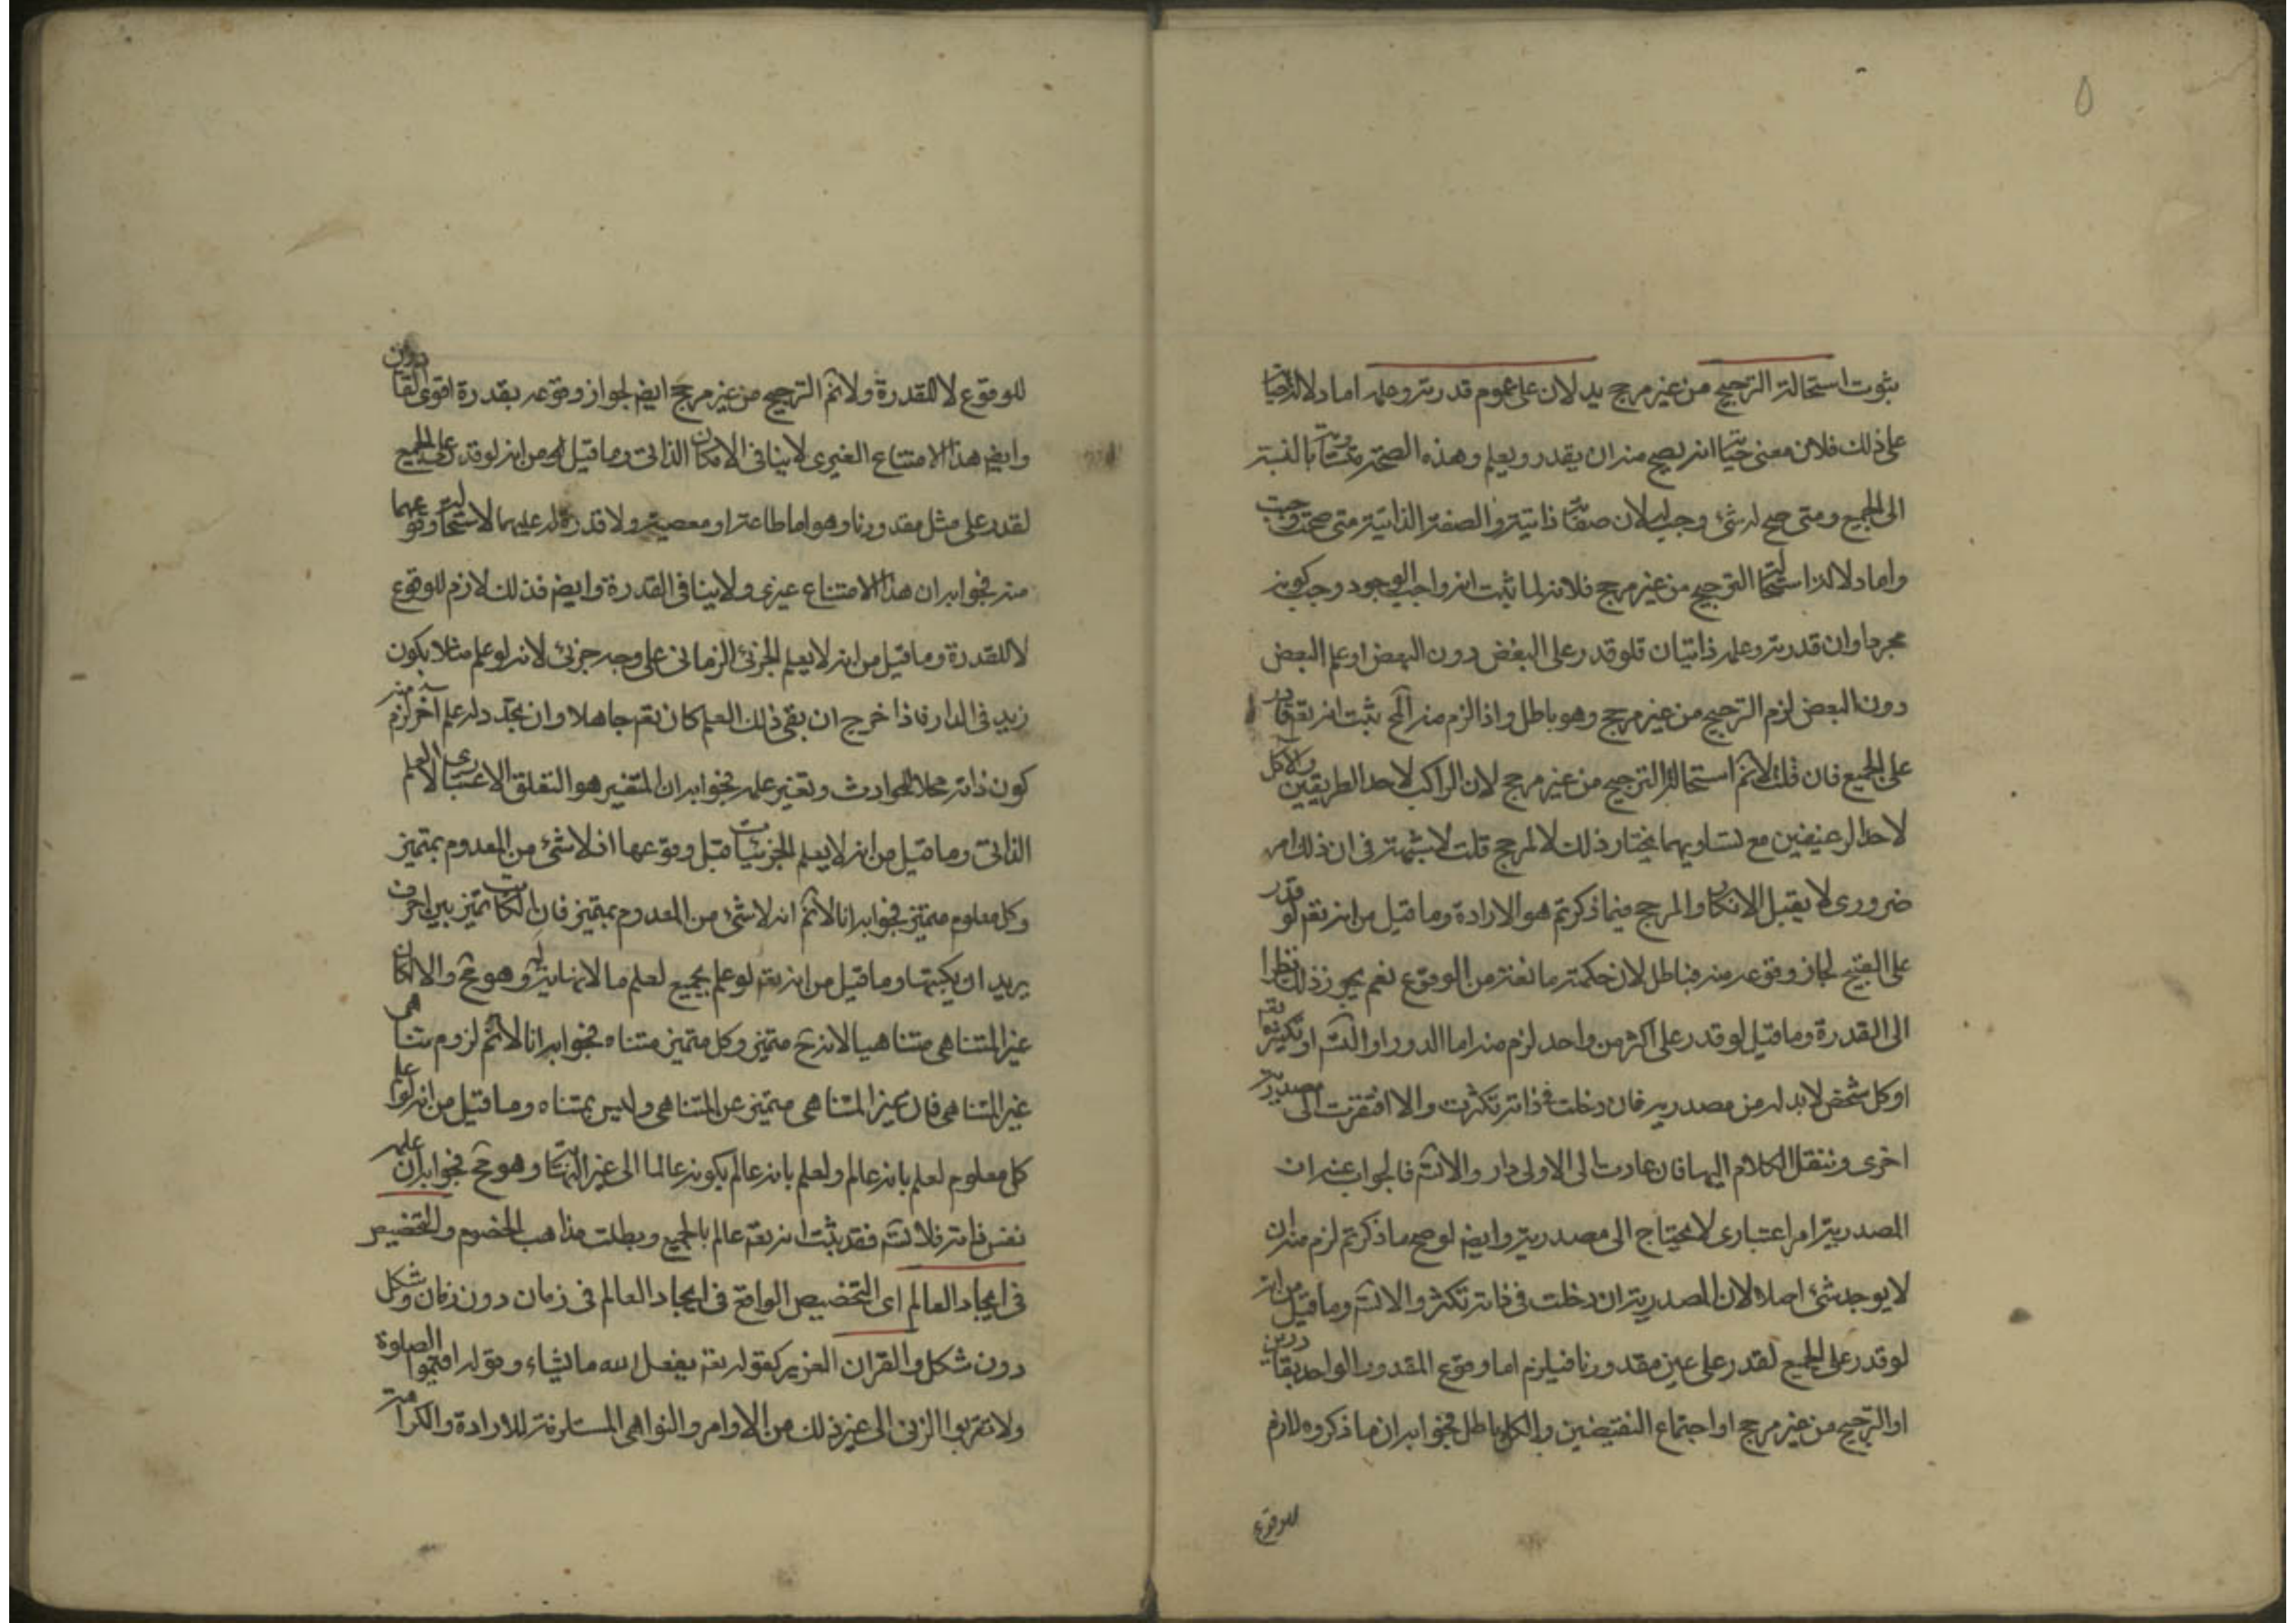 ٥
ثبوت استحالة الترجيح من غير مرجح يدلان على عموم قدرته وعلمه اما دلالة حيّا
على ذلك فلان معنى حيّا انه يصح منه ان يقدر ويعلم وهذه الصحة متساوية بالنسبة
الى الجميع ومتى صح له شئ وجب له لان صفاته ذاتية والصفة الذاتية متى صحت وجبت
واما دلالة استحالة الترجيح من غير مرجح فلانه لما ثبت انه واجب الوجود وجب كونه
مجردا وان قدرته وعلمه ذاتيان فلو قدر على البعض دون البعض او علم البعض
دون البعض لزم الترجيح من غير مرجح وهو باطل واذا لزم منه المح ثبت انه تعه قادر
على الجميع فان قلت لانم استحالة الترجيح من غير مرجح لان الراكب لاحد الطريقين والآكل
لاحد الرغيفين مع تساويهما يختار ذلك لا لمرجح قلت لا شبهة فى ان ذلك امر
ضرورى لا يقبل الانكار والمرجح فيما ذكرتم هو الارادة وما قيل من انه تعه لو قدر
على القبيح لجاز وقوعه منه فباطل لان حكمته مانعة من الوقوع نعم يجوز ذلك نظرا
الى القدرة وما قيل لو قدر على اكثر من واحد لزم منه اما الدور او التسـ او تكثره تعه
اوكل شخص لابد له من مصدريه فان دخلت فى ذاته تكثرت والا افتقرت الى مصدرية
اخرى وننقل الكلام اليها فان عادت الى الاولى دار والا تسـ فالجواب عنه ان
المصدرية امر اعتبارى لا يحتاج الى مصدرية وايضـ لو صح ما ذكرتم لزم منه ان
لا يوجد شئ اصلا لان المصدرية ان دخلت فى ذاته تكثر والا تسـ وما قيل من انه
لو قدر على الجميع لقدر على عين مقدورنا فيلزم اما وقوع المقدور الواحد بقادرين
او الترجيح من غير مرجح او اجتماع النقيضين والكل باطل فجوابه ان ما ذكروه لازم
للوقوع
للوقوع لا للقدرة ولانم الترجيح من غير مرجح ايضـ لجواز وقوعه بقدرة اقوى القادرين
وايضـ هذا الامتناع الغيرى لا ينافى الامكان الذاتى وما قيل من انه لو قدر على الجميع
لقدر على مثل مقدورنا وهو اما طاعة او معصية ولا قدرة له عليهما لاستحالة وقوعهما
منه فجوابه ان هذا الامتناع غيرى ولا ينافى القدرة وايضـ فذلك لازم للوقوع
لا للقدرة وما قيل من انه لا يعلم الجزئى الزمانى على وجه جزئى لانه لو علم مثلا بكون
زيد فى الدار فاذا خرج ان بقى ذلك العلم كان تعه جاهلا وان تجدد له علم آخر لزم منه
كون ذاته محلا للحوادث وتغير علمه فجوابه ان المتغير هو التعلق الاعتبارى لا العلم
الذاتى وما قيل من انه لا يعلم الجزئيات قبل وقوعها اذ لا شئ من المعدوم بمتميز
وكل معلوم متميز فجوابه انا لانم انه لا شئ من المعدوم بمتميز فان الكاتب تميز بين احرف
يريد ان يكتبها وما قيل من انه تعه لو علم بجميع لعلم ما لا نهاية له وهو مح والا لكان
غير المتناهى متناهيا لانه ح متميز وكل متميز متناه فجوابه انا لانم لزوم تناهى
غير المتناهى فان غير المتناهى متميز عن المتناهى وليس بمتناه وما قيل من انه لو علم
كل معلوم لعلم بانه عالم ولعلم بانه عالم بكونه عالما الى غير النهاية وهو مح فجوابه ان علمه
نفس ذاته فلا تسـ فقد ثبت انه تعه عالم بالجميع وبطلت مذاهب الخصوم والتخصيص
فى ايجاد العالم اى التخصيص الواقع فى ايجاد العالم فى زمان دون زمان وشكل
دون شكل والقران العزيز كقوله تعه يفعل الله ما يشاء وقوله اقيموا الصلوة
ولا تقربوا الزنى الى غير ذلك من الاوامر والنواهى المستلزمة للارادة والكراهة